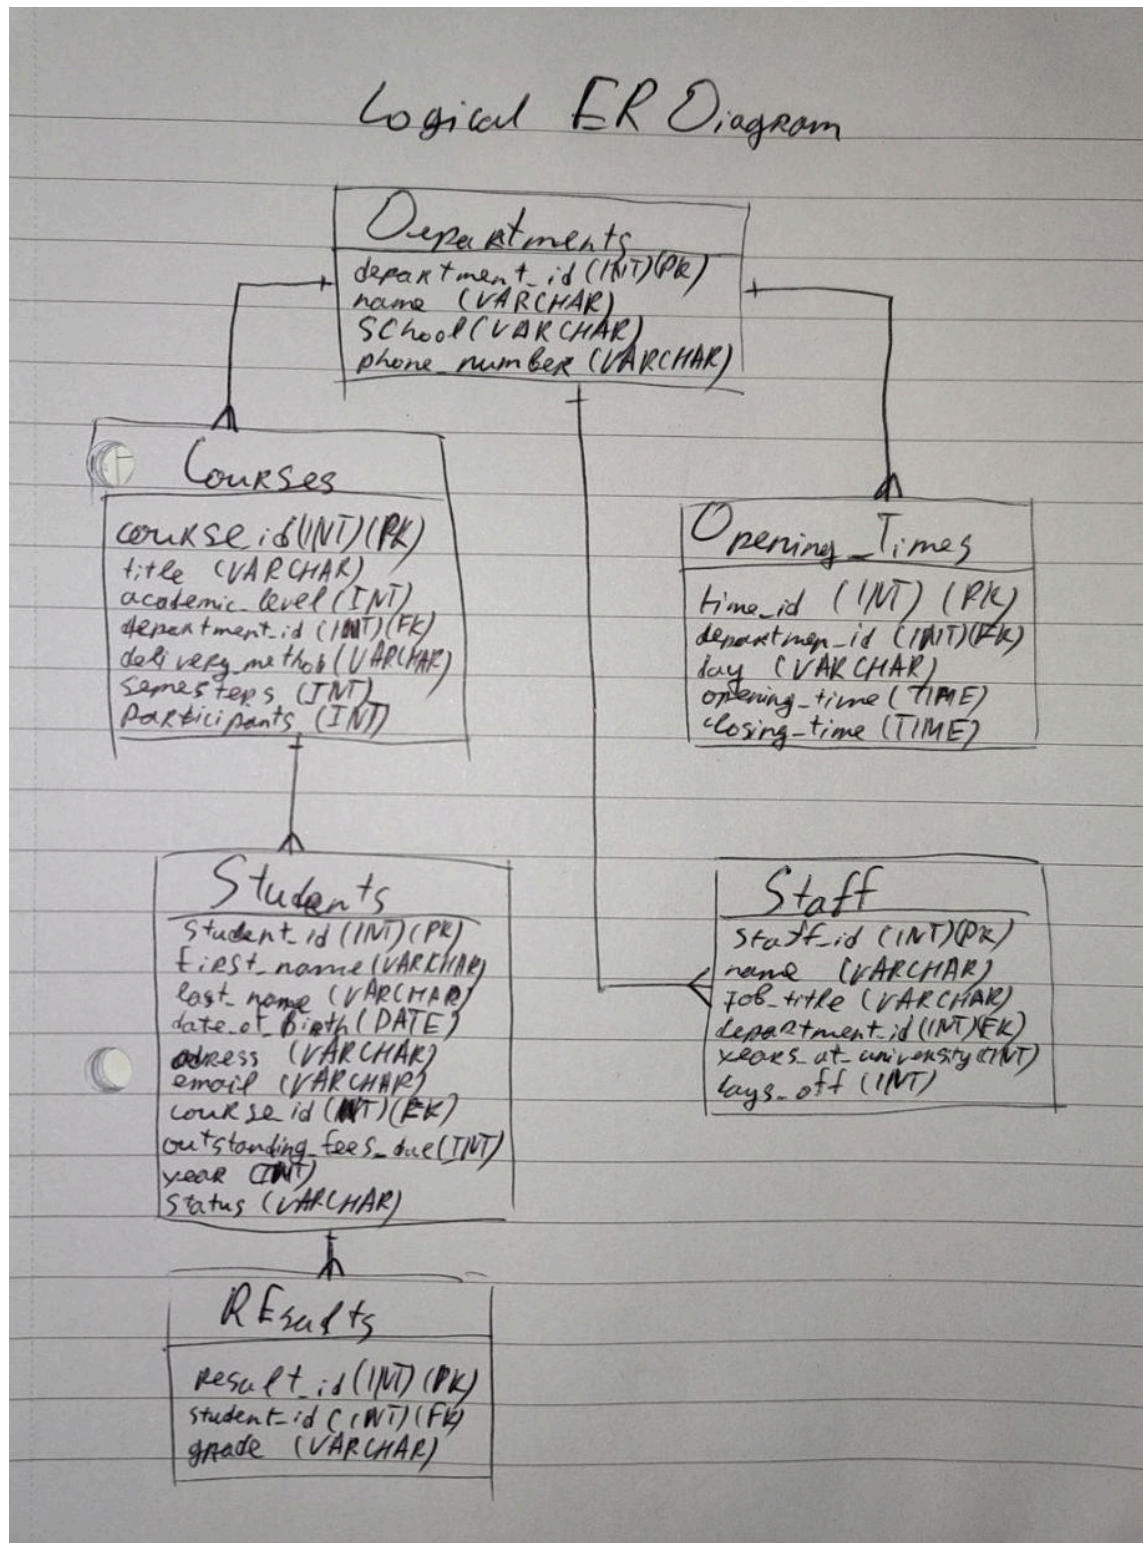 Logical ER Diagram
Departments
department_id (INT)(PK)
name (VARCHAR)
School (VARCHAR)
phone_number (VARCHAR)
Courses
course_id (INT)(PK)
title (VARCHAR)
academic_level (INT)
department_id (INT)(FK)
delivery_method (VARCHAR)
semesters (INT)
Participants (INT)
Opening_Times
time_id (INT) (PK)
departmen_id (INT)(FK)
day (VARCHAR)
opening_time (TIME)
closing_time (TIME)
Students
Student_id (INT)(PK)
first_name (VARCHAR)
last_name (VARCHAR)
date_of_Birth (DATE)
adress (VARCHAR)
email (VARCHAR)
course_id (INT)(FK)
outstanding_fees_due (INT)
year (INT)
Status (VARCHAR)
Staff
Staff_id (INT)(PK)
name (VARCHAR)
Job_title (VARCHAR)
department_id (INT)(FK)
years_at_university (INT)
days_off (INT)
REsults
Result_id (INT)(PK)
student_id (INT)(FK)
grade (VARCHAR)